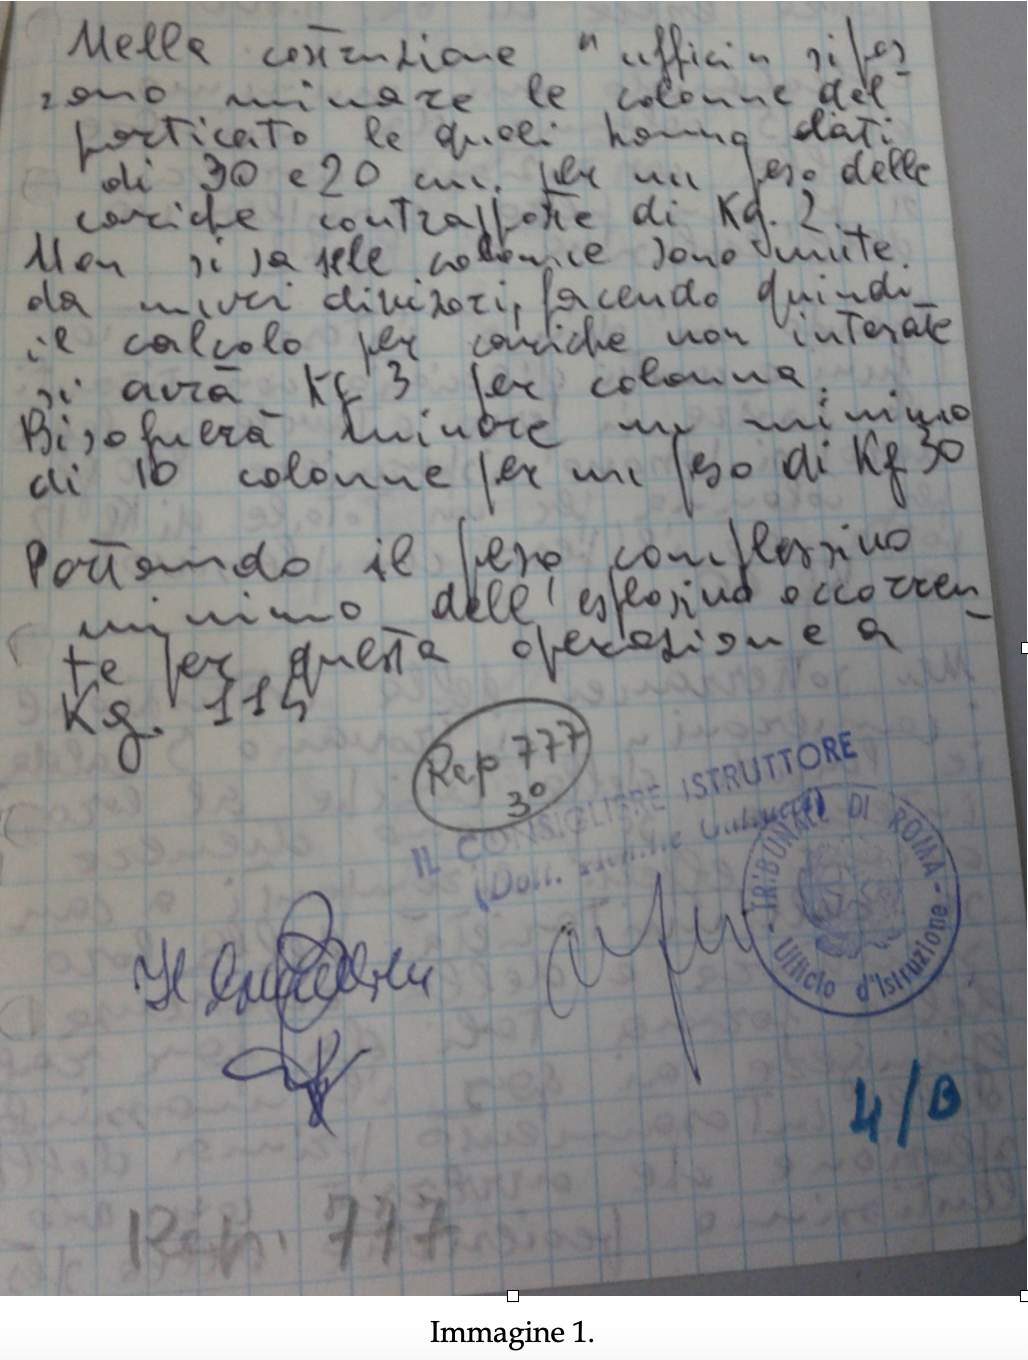 Nella costruzione "uffici" si pos-
sono minare le colonne del
porticato le quali hanno dati
di 30 e 20 cm. per un peso delle
cariche contrapposte di Kg. 2
Non si sa se le colonne sono unite
da muri divisori, facendo quindi
il calcolo per cariche non intasate
si avrà Kg 3 per colonna.
Bisognerà minare un minimo
di 10 colonne per un peso di Kg 30
Portando il peso complessivo
minimo dell'esplosivo occorren-
te per questa operazione a
Kg. 115
Rep 777
3°
IL CONSIGLIERE ISTRUTTORE
(Dott.
TRIBUNALE DI ROMA
Ufficio d'Istruzione
Il
4/B
Rep. 777
Immagine 1.